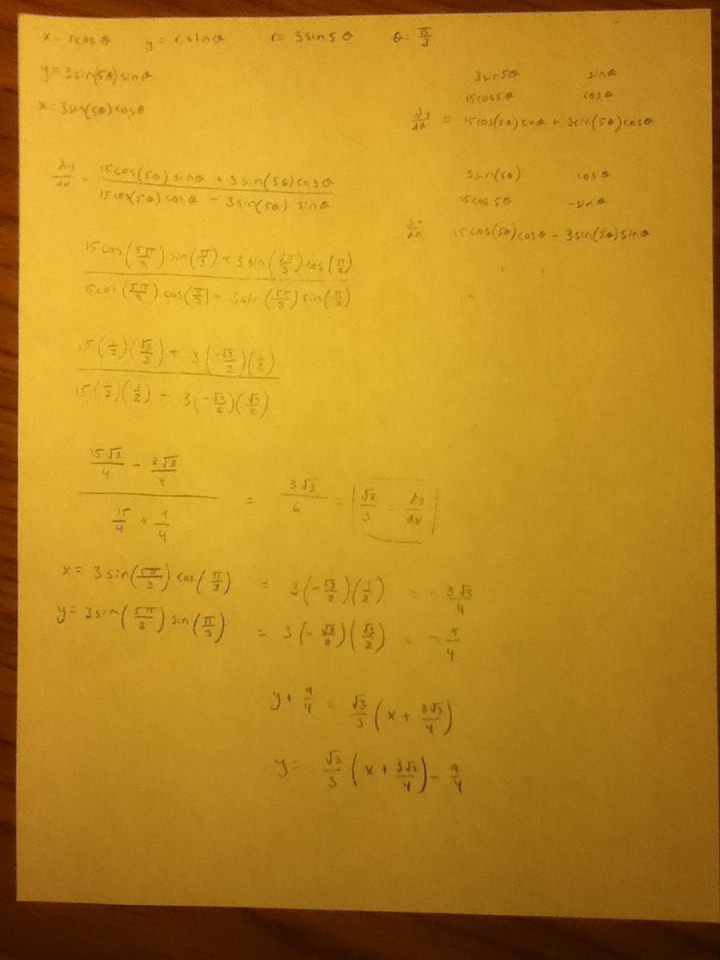 x = rcosθ y = rsinθ r = 3sin5θ θ = π/3
y = 3sin(5θ)sinθ
x = 3sin(5θ)cosθ
3sin5θ sinθ
15cos5θ cosθ
dy/dθ = 15cos(5θ)sinθ + 3sin(5θ)cosθ
3sin(5θ) cosθ
15cos5θ -sinθ
dx/dθ 15cos(5θ)cosθ - 3sin(5θ)sinθ
dy/dx = (15cos(5θ)sinθ + 3sin(5θ)cosθ)/(15cos(5θ)cosθ - 3sin(5θ)sinθ)
15cos(5π/3)sin(π/3) + 3sin(5π/3)cos(π/3)
15cos(5π/3)cos(π/3) - 3sin(5π/3)sin(π/3)
15(1/2)(√3/2) + 3(-√3/2)(1/2)
15(1/2)(1/2) - 3(-√3/2)(√3/2)
15√3/4 - 3√3/4
15/4 + 9/4
= 3√3/6 = √3/3 = dy/dx
x = 3sin(5π/3)cos(π/3) = 3(-√3/2)(1/2) = -3√3/4
y = 3sin(5π/3)sin(π/3) = 3(-√3/2)(√3/2) = -9/4
y + 9/4 = √3/3(x + 3√3/4)
y = √3/3(x + 3√3/4) - 9/4